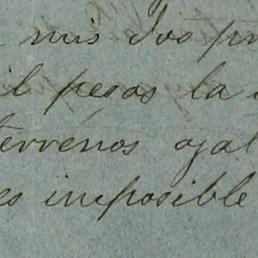 mis dos pr
il pesos la
terrenos ojal
es imposible